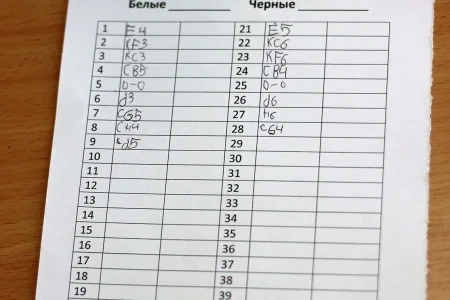 Белые __________ Черные __________
1 E4 21 E5
2 KF3 22 KC6
3 KC3 23 KF6
4 CB5 24 CB4
5 0-0 25 0-0
6 d3 26 d6
7 CG5 27 H6
8 CH4 28 CG4
9 Kd5 29
10 30
11 31
12 32
13 33
14 34
15 35
16 36
17 37
18 38
19 39